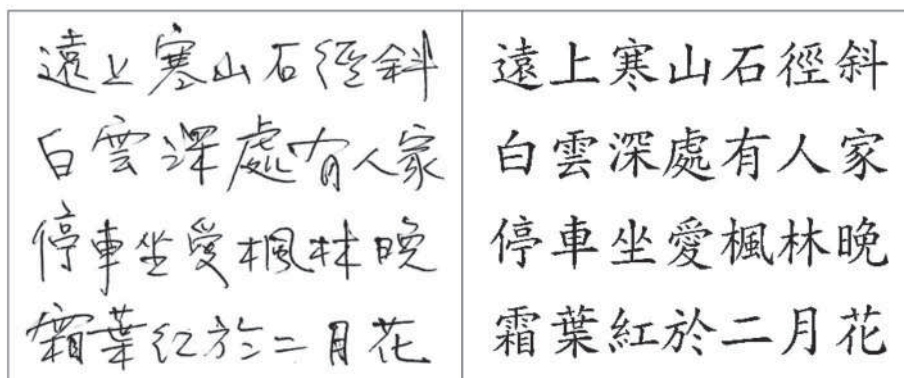 遠上寒山石徑斜
白雲深處有人家
停車坐愛楓林晚
霜葉紅於二月花
遠上寒山石徑斜
白雲深處有人家
停車坐愛楓林晚
霜葉紅於二月花